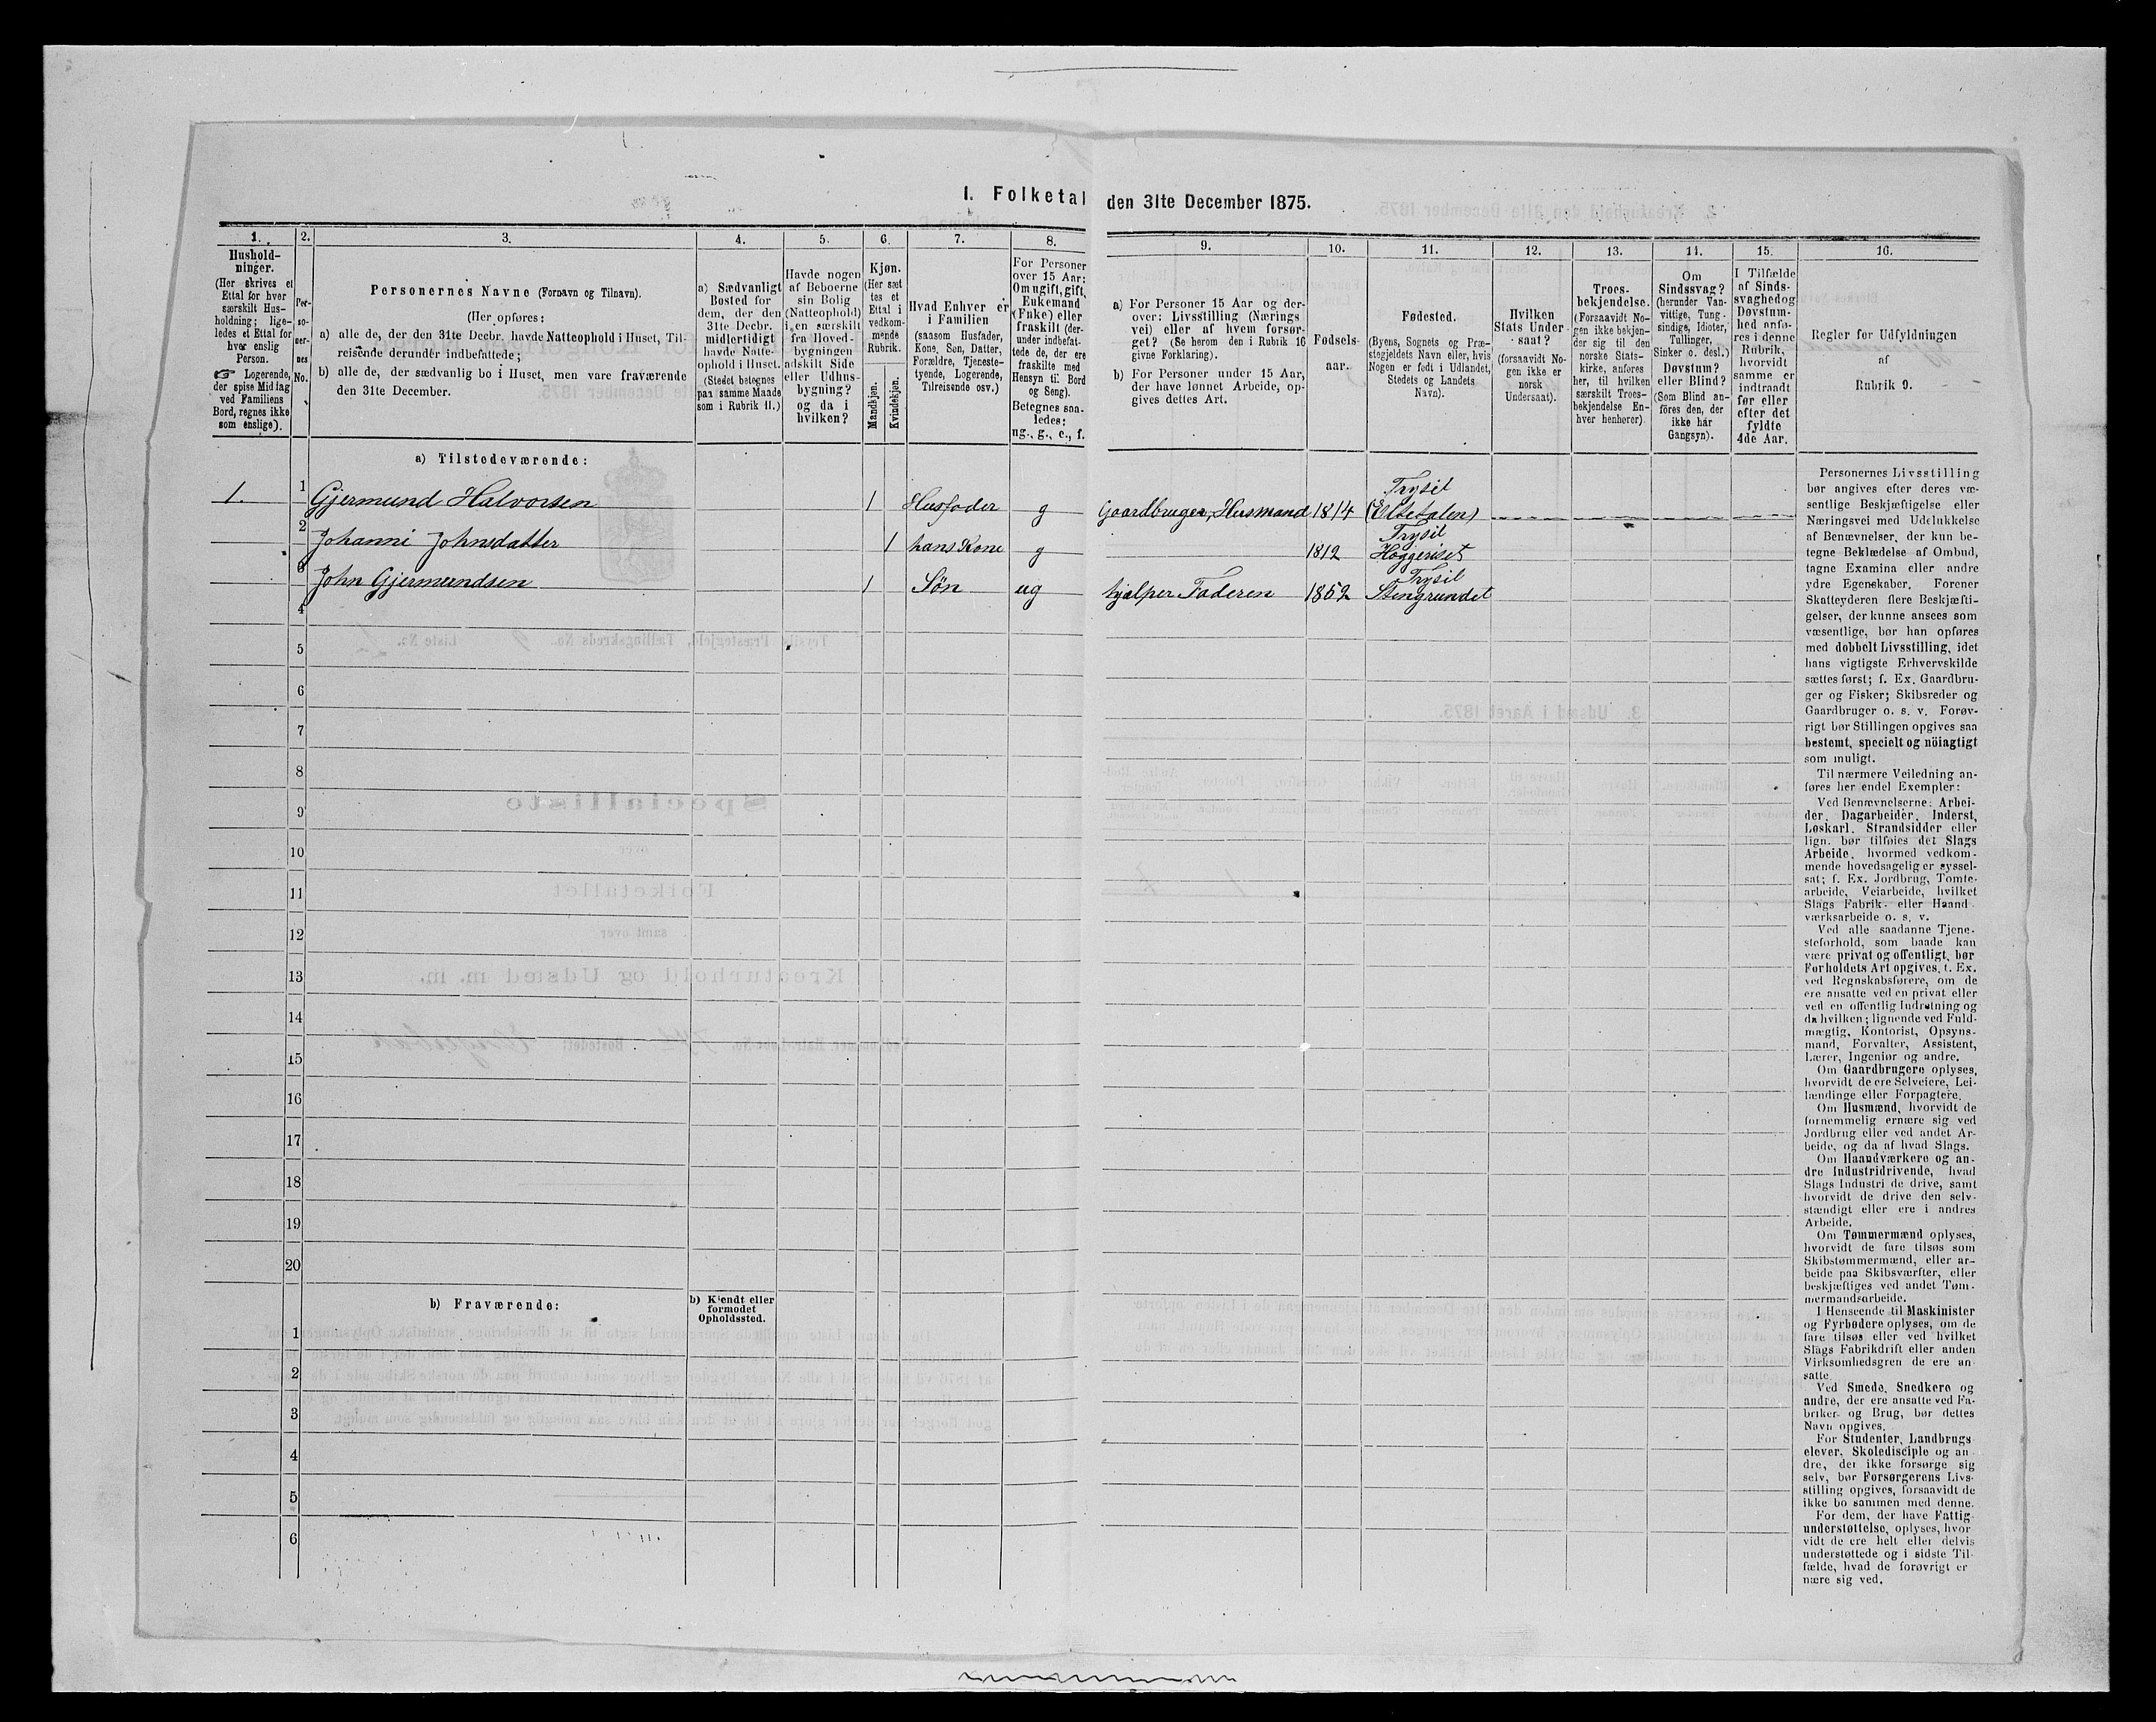 I. Folketal den 31te December 1875.
1.
Hushold-
ninger.
(Her skrives et
Ettal for hver
særskilt Hus-
holdning; lige-
ledes et Ettal for
hver enslig
Person.
☞ Logerende,
der spise Middag
ved Familiens
Bord, regnes ikke
som enslige).
2.
Per-
so-
ner-
nes
No.
3.
Personernes Navne (Fornavn og Tilnavn).
(Her opføres:
a) alle de, der den 31te Decbr. havde Natteophold i Huset, Til-
reisende derunder indbefattede;
b) alle de, der sædvanlig bo i Huset, men vare fraværende
den 31te December.
4.
a) Sædvanligt
Bosted for
dem, der den
31te Decbr.
midlertidigt
havde Natte-
ophold i Huset.
(Stedet betegnes
paa samme Maade
som i Rubrik 11.)
5.
Havde nogen
af Beboerne
sin Bolig
(Natteophold)
i en særskilt
fra Hoved-
bygningen
adskilt Side
eller Udhus-
bygning?
og da i
hvilken?
6.
Kjøn.
(Her sæt
tes et
Ettal i
vedkom-
mende
Rubrik.
Mandkjøn.
Kvindekjøn.
7.
Hvad Enhver er
i Familien
(saasom Husfader,
Kone, Søn, Datter,
Forældre, Tjeneste-
tyende, Logerende,
Tilreisende osv.)
8.
For Personer
over 15 Aar:
Om ugift, gift,
Enkemand
(Enke) eller
fraskilt (der-
under indbefat-
tede de, der ere
fraskilte med
Hensyn til Bord
og Seng).
Betegnes saa-
ledes:
ug., g., e., f.
9.
a) For Personer 15 Aar og der-
over: Livsstilling (Nærings
vei) eller af hvem forsør-
get? (Se herom den i Rubrik 16
givne Forklaring).
b) For Personer under 15 Aar,
der have lønnet Arbeide, op-
gives dettes Art.
10.
Fødsels-
aar.
11.
Fødested.
(Byens, Sognets og Præ-
stegjeldets Navn eller, hvis
Nogen er født i Udlandet,
Stedets og Landets
Navn).
12.
Hvilken
Stats Under-
saat?
(forsaavidt No-
gen ikke er
norsk
Undersaat).
13.
Troes-
bekjendelse.
(Forsaavidt No-
gen ikke bekjen-
der sig til den
norske Stats-
kirke, anføres
her, til hvilken
særskilt Troes-
bekjendelse En-
hver henhører).
14.
Om
Sindssvag?
(herunder Van-
vittige, Tung-
sindige, Idioter,
Tullinger,
Sinker o. desl.)
Døvstum?
eller Blind?
(Som Blind an-
føres den, der
ikke har
Gangsyn).
15.
I Tilfælde
af Sinds-
svaghed og
Døvstum-
hed anfø-
res i denne
Rubrik,
hvorvidt
samme er
indtraadt
før eller
efter det
fyldte
4de Aar.
16.
Regler for Udfyldningen
af
Rubrik 9.
a) Tilstedeværende:
1. 1 Gjermund Halvorsen 1 Husfader g Gaardbruger, Husmand 1814 Trysil (Eltetalen)
2 Johanni Johnsdatter 1 hans Kone g 1812 Trysil Høggeriset
3 John Gjermundsen 1 Søn ug hjælper Faderen 1852 Trysil Stengrundet
4
5
6
7
8
9
10
11
12
13
14
15
16
17
18
19
20
b) Fraværende:
b) Kjendt eller
formodet
Opholdssted.
1
2
3
4
5
6
Personernes Livsstilling
bør angives efter deres væ-
sentlige Beskjæftigelse eller
Næringsvei med Udelukkelse
af Benævnelser, der kun be-
tegne Beklædelse af Ombud,
tagne Examina eller andre
ydre Egenskaber. Forener
Skatteyderen flere Beskjæfti-
gelser, der kunne ansees som
væsentlige, bør han opføres
med dobbelt Livsstilling, idet
hans vigtigste Erhvervskilde
sættes først; f. Ex. Gaardbru-
ger og Fisker; Skibsreder og
Gaardbruger o. s. v. Forøv-
rigt bør Stillingen opgives saa
bestemt, specielt og nöiagtigt
som muligt.
Til nærmere Veiledning an-
føres her endel Exempler:
Ved Benævnelserne: Arbei-
der, Dagarbeider, Inderst,
Løskarl, Strandsidder eller
lign. bør tilføies det Slags
Arbeide, hvormed vedkom-
mende hovedsagelig er syssel-
sat; f. Ex. Jordbrug, Tomte-
arbeide, Veiarbeide, hvilket
Slags Fabrik- eller Haand
værksarbeide o. s. v.
Ved alle saadanne Tjene-
steforhold, som baade kan
være privat og offentligt, bør
Forholdets Art opgives, f. Ex.
ved Regnskabsførere, om de
ere ansatte ved en privat eller
ved en offentlig Indretning og
da hvilken; lignende ved Fuld-
mægtig, Kontorist, Opsyns-
mand, Forvalter, Assistent,
Lærer, Ingeniør og andre.
Om Gaardbrugere oplyses,
hvorvidt de ere Selveiere, Lei-
lændinge eller Forpagtere.
Om Husmænd, hvorvidt de
fornemmelig ernære sig ved
Jordbrug eller ved andet Ar-
beide, og da af hvad Slags.
Om Haandværkere og an-
dre Industridrivende, hvad
Slags Industri de drive, samt
hvorvidt de drive den selv-
stændigt eller ere i andres
Arbeide.
Om Tømmermænd oplyses,
hvorvidt de fare tilsøs som
Skibstømmermænd, eller ar-
beide paa Skibsværfter, eller
beskjæftiges ved andet Tøm-
mermandsarbeide.
I Henseende til Maskinister
og Fyrbødere oplyses, om de
fare tilsøs eller ved hvilket
Slags Fabrikdrift eller anden
Virksomhedsgren de ere an-
satte.
Ved Smede, Snedkere og
andre, der ere ansatte ved Fa-
briker og Brug, bør dettes
Navn opgives.
For Studenter, Landbrugs
elever, Skoledisciple og an-
dre, der ikke forsørge sig
selv, bør Forsørgerens Livs-
stilling opgives, forsaavidt de
ikke bo sammen med denne.
For dem, der have Fattig
understøttelse, oplyses, hvor
vidt de ere helt eller delvis
understøttede og i sidste Til-
fælde, hvad de forøvrigt er
nære sig ved.